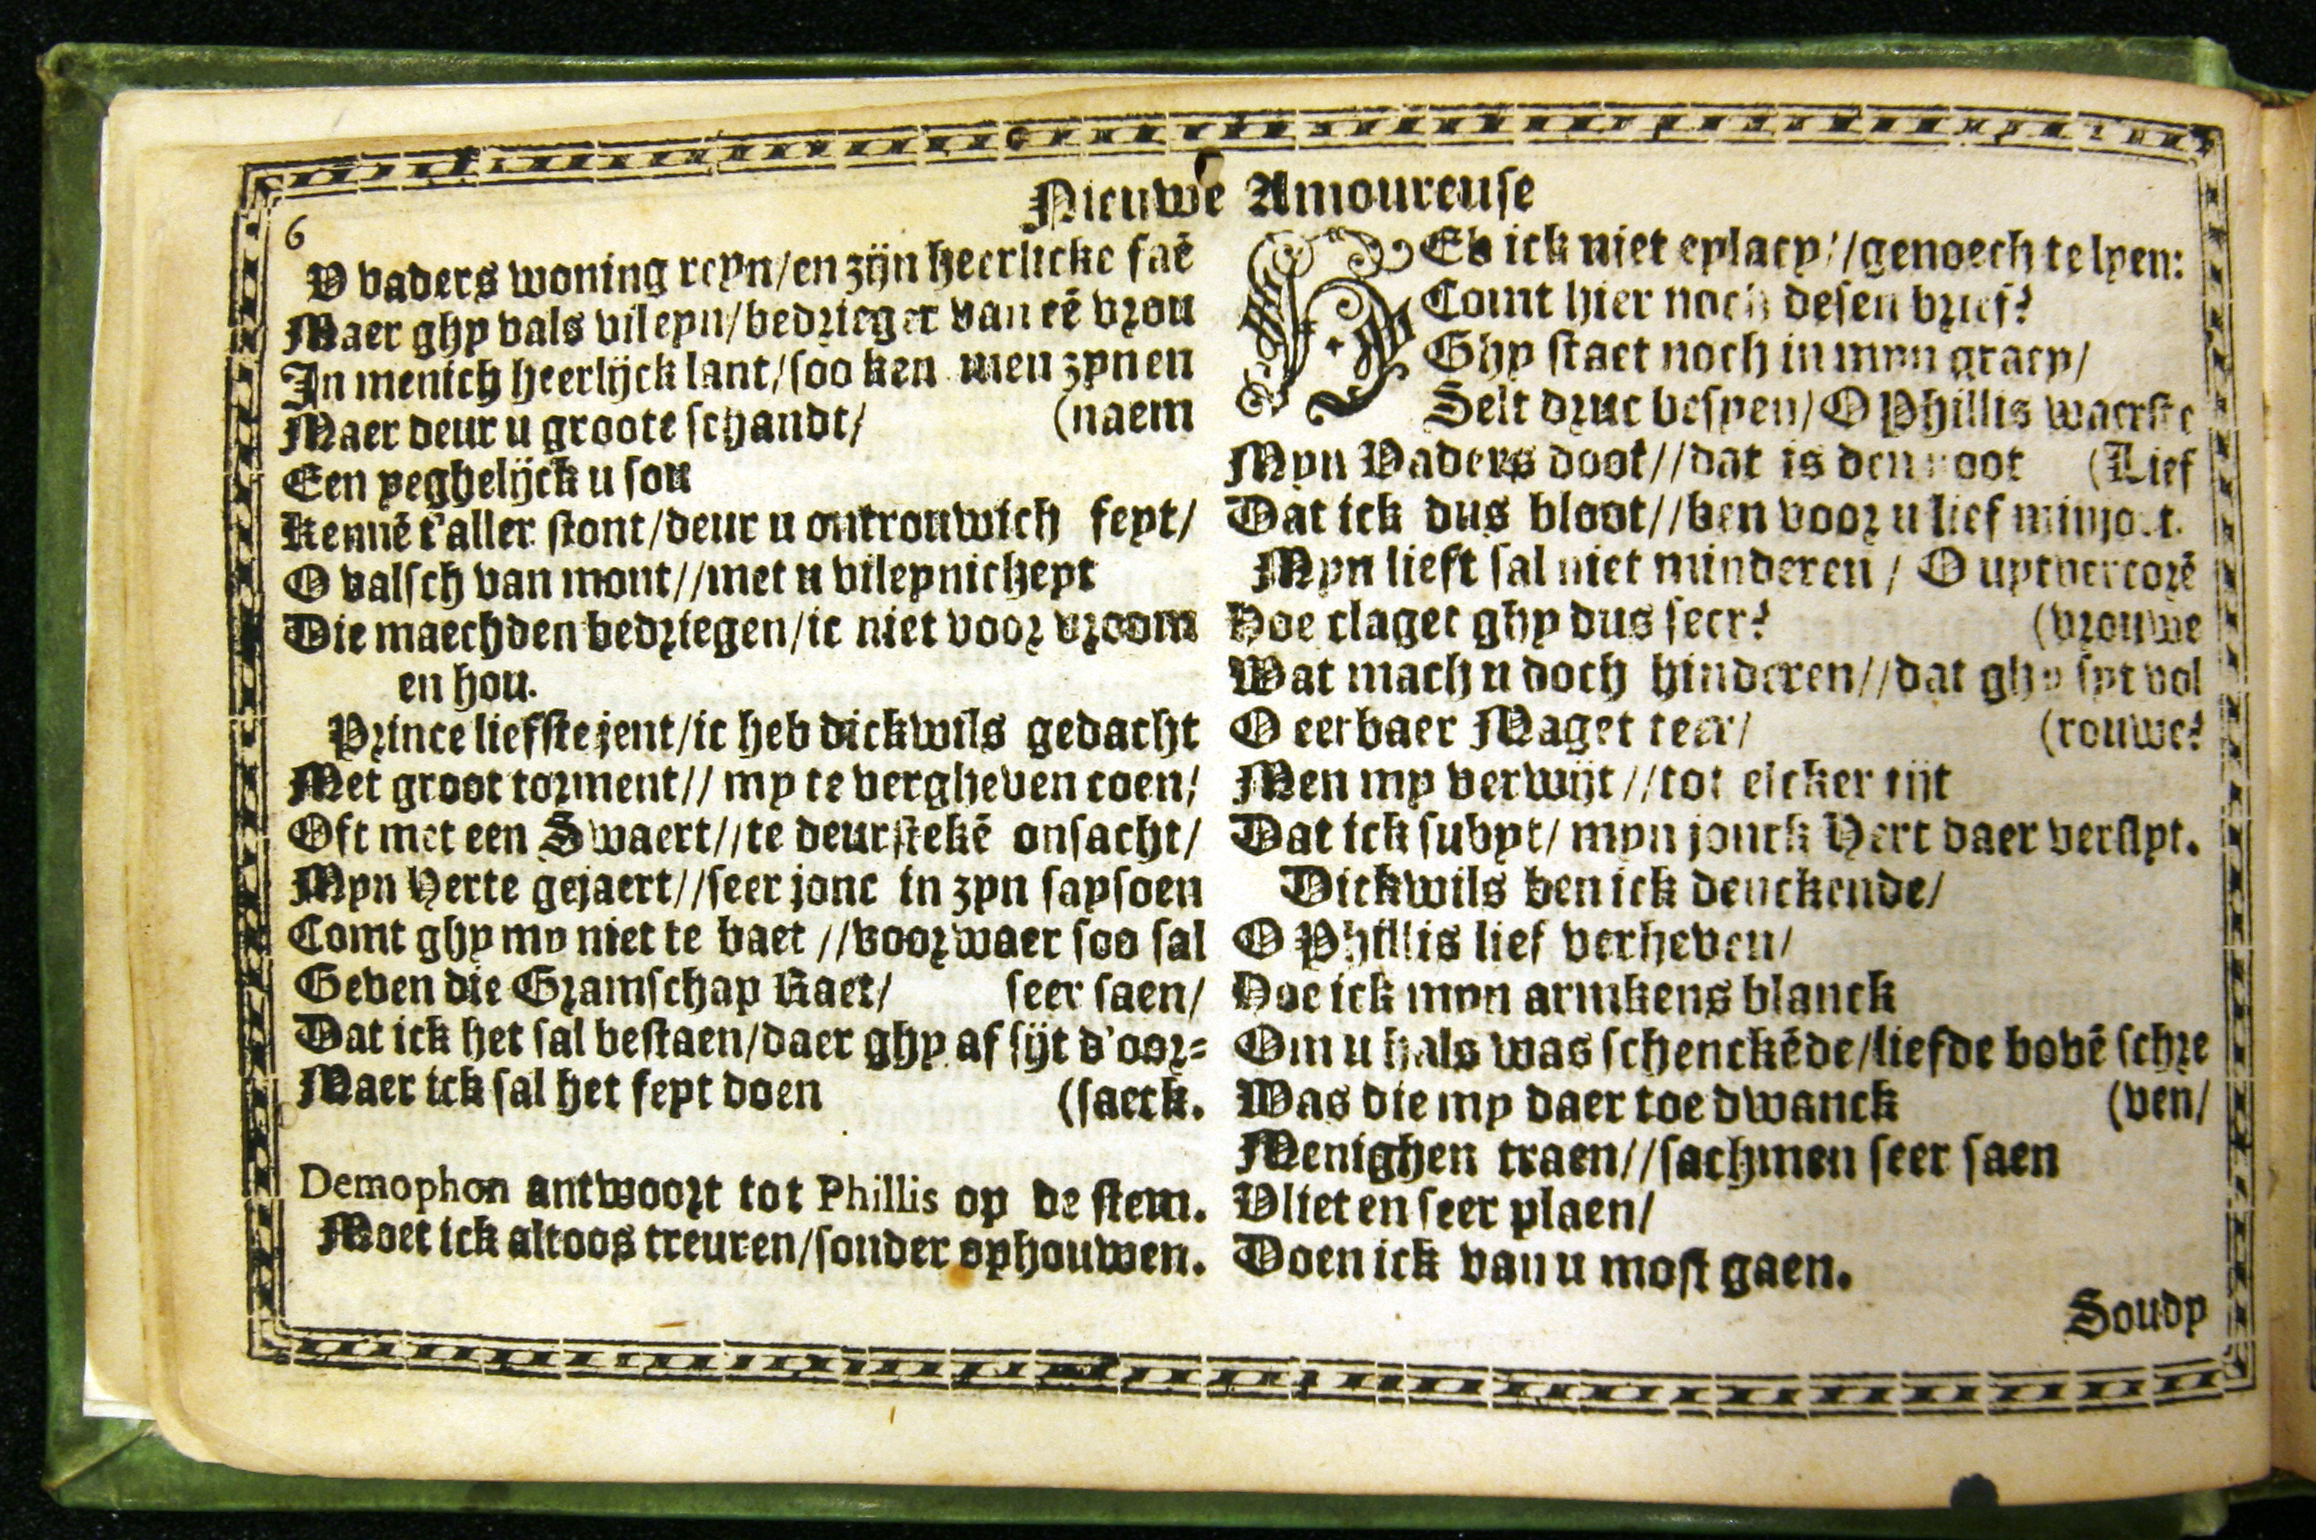 Nieuwe Amoureuse
6
V vaders woning reyn/en zijn heerlicke faē
Maer ghy vals vileyn/bedrieger van eē vrou
In menich heerlijck lant/soo ken men zyn en
Maer deur u groote schandt/ (naem
Een yeghelijck u sou
Kennē t'aller stont/deur u ontrouwich feyt/
O valsch van mont//met u vileynicheyt
Die maechden bedriegen/ic niet voor vroom
en hou.
Prince liefste jent/ic heb dickwils gedacht
Met groot torment// my te vergheven coen/
Oft met een Swaert//te deurstekē onsacht/
Myn Herte gejaert//seer jonc in zyn saysoen
Comt ghy my niet te baet //voorwaer soo sal
Geven die Gramschap Raet/ seer saen/
Dat ick het sal bestaen/daer ghy af sijt d'oor=
Maer ick sal het feyt doen (saeck.
Demophon antwoort tot Phillis op de stem.
Moet ick altoos treuren/sonder ophouwen.
HEb ick niet eylacy//genoech te lyen:
Comt hier noch desen brief?
Ghy staet noch in myn gracy/
Selt druc besyen/O Phillis waerste
Myn Vaders doot//dat is den noot (Lief
Dat ick dus bloot//ben voor u lief
Myn lieft sal niet minderen / O uytvercorē
Hoe claget ghy dus seer? (vrouwe
Wat mach u doch hinderen//dat ghy syt vol
O eerbaer Maget teer/ (rouwe?
Men my verwijt //tot elcker tijt
Dat ick subyt/ myn jonck Hert daer verslyt.
Dickwils ben ick denckende/
O Phillis lief verheven/
Hoe ick myn armkens blanck
Om u hals was schenckēde/liefde bovē schre
Was die my daer toe dwanck (ven/
Menighen traen//sachmen seer saen
Vliet en seer plaen/
Doen ick van u most gaen.
Soudy